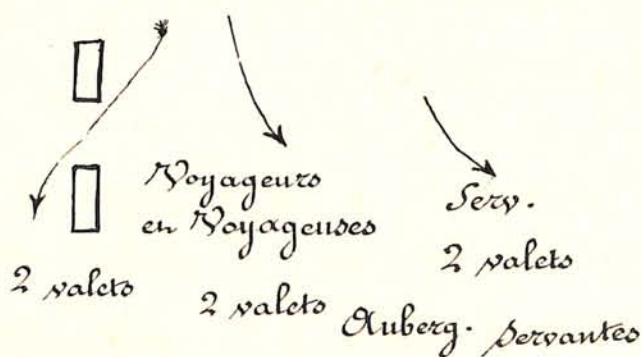 Voyageurs
en Voyageuses
2 valets
2 valets
Serv.
2 valets
Auberg. Servantes